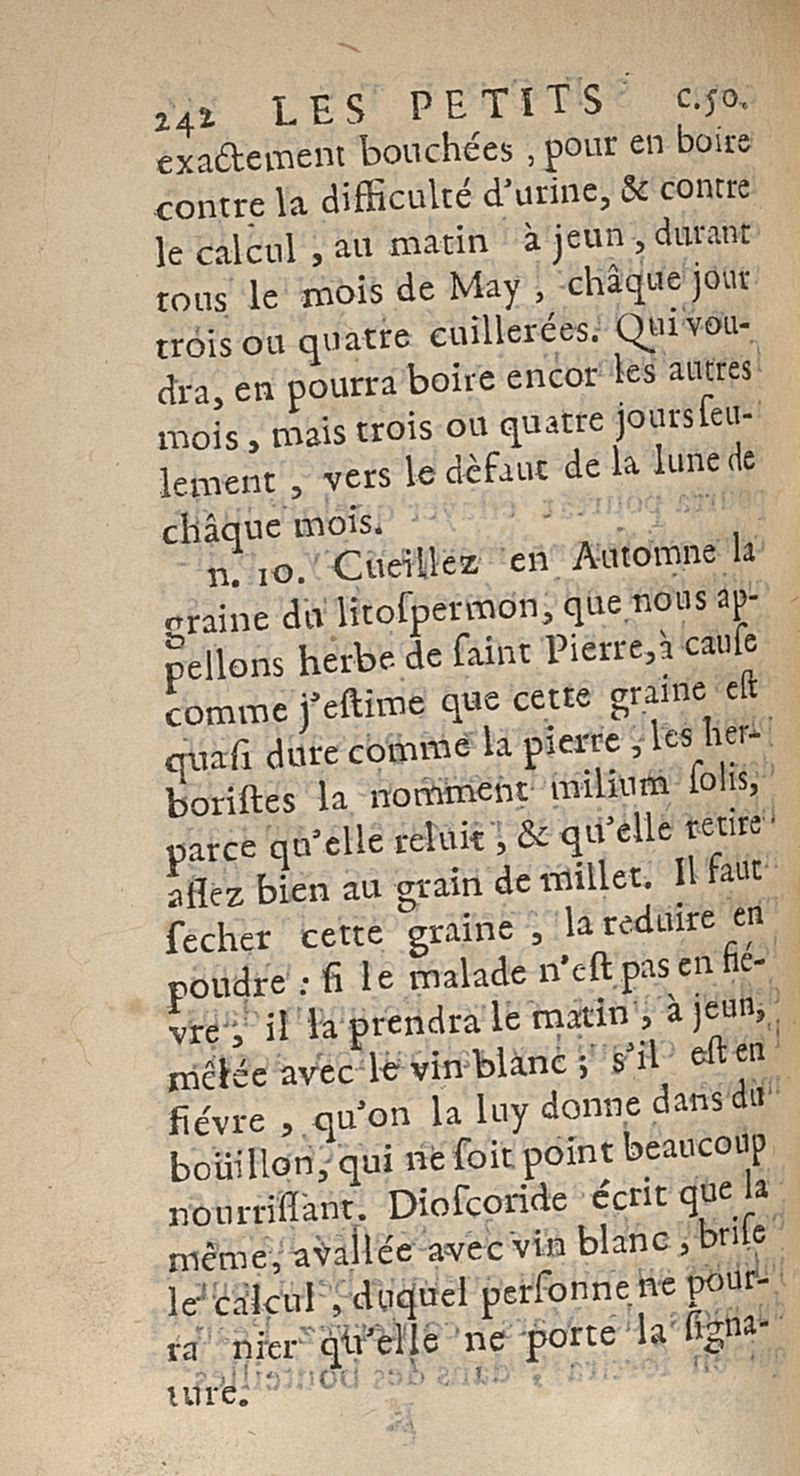 242 LES PETITS C.50.
exactement bouchées , pour en boire
contre la difficulté d'urine, & contre
le calcul , au matin à jeun , durant
tous le mois de May , châque jour
trois ou quatre cuillerées. Qui vou-
dra, en pourra boire encor les autres
mois , mais trois ou quatre jours ſeu-
lement , vers le dèfaut de la lune de
châque mois.
n. 10. Cueillez en Automne la
graine du litoſpermon, que nous ap-
pellons herbe de ſaint Pierre, à cauſe
comme j'eſtime que cette graine eſt
quaſi dure comme la pierre , les her-
boriſtes la nomment milium ſolis,
parce qu'elle reluit , & qu'elle retire
aſſez bien au grain de millet. Il faut
ſecher cette graine , la reduire en
poudre : ſi le malade n'eſt pas en fié-
vre , il la prendra le matin , à jeun,
mêlée avec le vin blanc ; s'il eſt en
fiévre , qu'on la luy donne dans du
boüillon, qui ne ſoit point beaucoup
nourriſſant. Dioſcoride écrit que la
même, avallée avec vin blanc , briſe
le calcul , duquel perſonne ne pour-
ra nier qu'elle ne porte la ſigna-
ture.